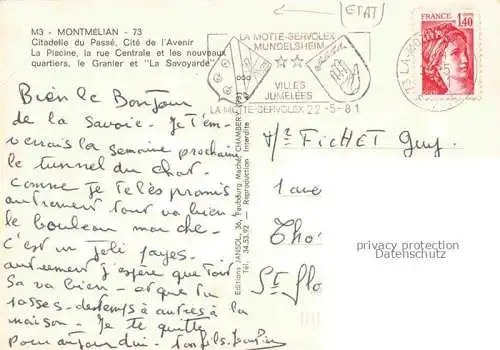 M3 - MONTMÉLIAN - 73
Citadelle du Passé, Cité de l'Avenir
La Piscine, la rue Centrale et les nouveaux
quartiers, le Granier et "La Savoyarde"
(ETAT)
LA MOTTE-SERVOLEX
MUNDELSHEIM
VILLES
JUMELEES
LA MOTTE-SERVOLEX 22-5-81
FRANCE
1,40
73 LA MO
Bien le Bonjour
de la Savoie. Je t'em-
verrais la semaine prochaine
le tunnel du chat.
comme je te lès promis
autrement tout va bien
le bouleau marche.
C'est un Joli payes.
autrement j'espère que tout
Sa va bien - et que tu
passes - des temps à autres à la
maison. Je te quitte
pour aujourd'hui - ton fils
Editions JANSOL, 36, Faubourg Mâché CHAMBERY
Tél. 34.53.92 - Reproduction Interdite
FICHET Guy
1 ave
Tho
St Flo
privacy protection
Datenschutz